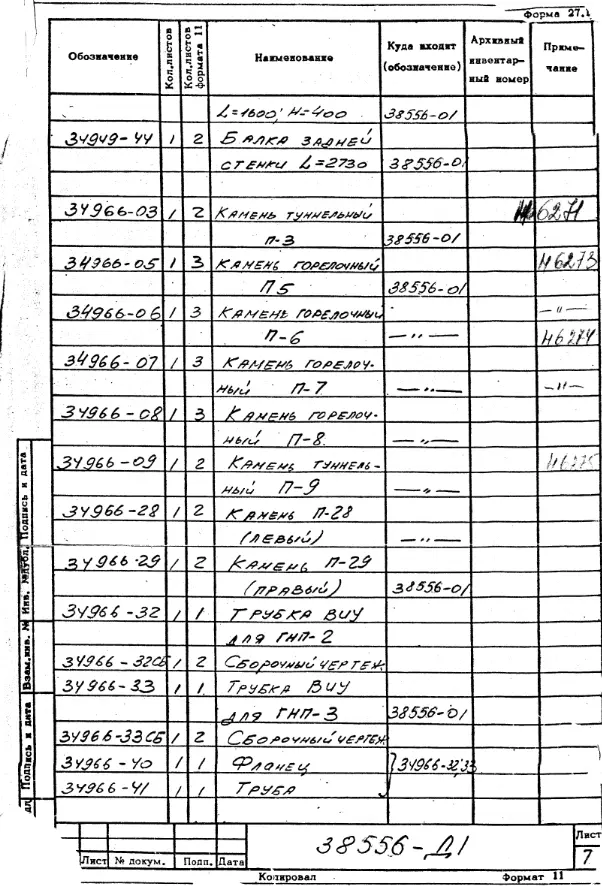 Форма 27.1
Обозначение Кол.листов Кол.листов формата 11 Наименование Куда входит (обозначение) Архивный инвентарный номер Примечание
L=1600; H=400 38556-01
34949-44 1 2 Балка задней
стенки L=2730 38556-01
34966-03 1 2 Камень туннельный 46271
п-3 38556-01
34966-05 1 3 Камень горелочный 46273
П5 38556-01
34966-06 1 3 Камень горелочный — " —
П-6 — " — 46274
34966-07 1 3 Камень горелоч-
ный П-7 — " — — " —
34966-08 1 3 Камень горелоч-
ный П-8. — " —
34966-09 1 2 Камень туннель- 46275
ный П-9 — " —
34966-28 1 2 Камень П-28
(левый) — " —
34966-29 1 2 Камень П-29
(правый) 38556-01
34966-32 1 1 Трубка ВиУ
для ГНП-2
34966-32СБ 1 2 Сборочный чертеж
34966-33 1 1 Трубка ВиУ
для ГНП-3 38556-01
34966-33СБ 1 2 Сборочный чертеж
34966-40 1 1 Фланец } 34966-32,33
34966-41 1 1 Труба
Подпись и дата
Инв. № дубл.
Взам.инв. №
Подпись и дата
38556-Д1
Лист
7
Лист № докум. Подп. Дата
Копировал Формат 11